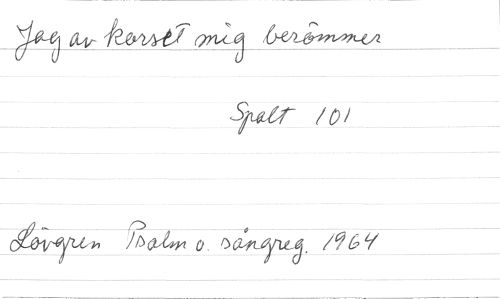 Jag av korset mig berömmer
Spalt 101
Lövgren Psalm o. sångreg. 1964